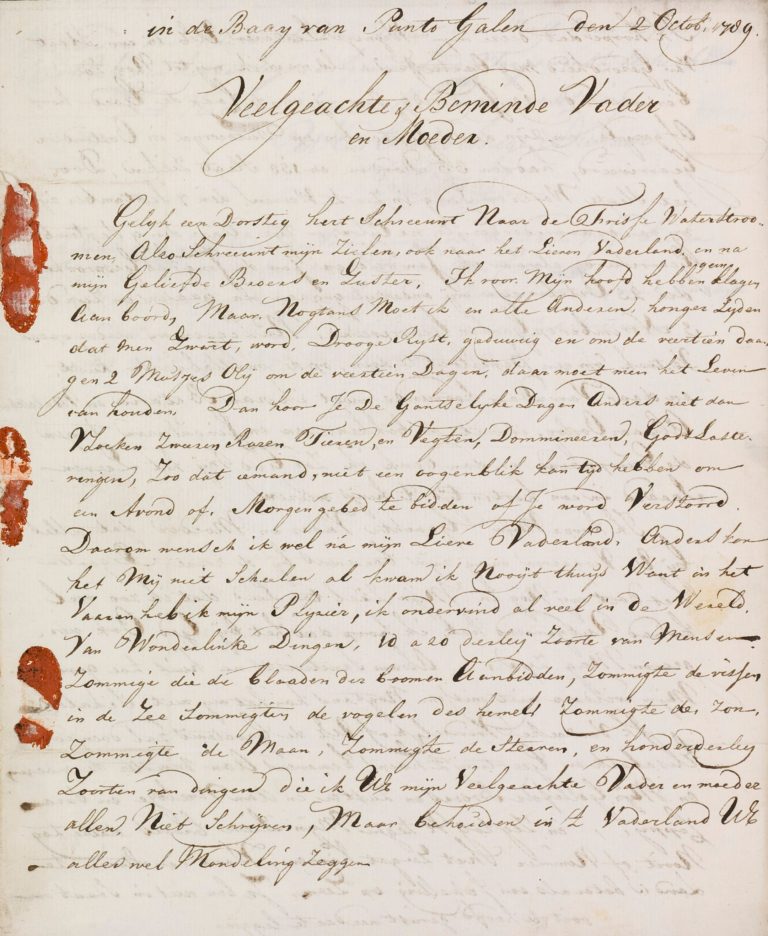 in de Baay van Punto Galen den 2 Octob. 1789.
Veelgeachte & Beminde Vader
en Moeder.
Gelyk een Dorstig hert Schreeuwt Naar de Frisse Waterstroo-
men, Also Schreeuwt mijn Zielen, ook naar het Lieven Vaderland, en na
mijn Geliefde Broers en Zuster, Ik voor Mijn hoofd hebben geen klagen
Aan boord, Maar, Nogtans Moet ik en alle Anderen, honger Lyden
dat men Zwart, word, Drooge Ryst, geduurig en om de veertien daa-
gen 2 Mutzjes Olij om de veertien Dagen, daar moet men het Leven
van houden, Dan hoor Je De Gantselyke Dagen Anders niet dan
Vloeken Zweren Razen Tieren, en Vegten, Dommineeren, Gods Laste-
ringen, Zoo dat iemand, niet een oogenblik kan tyd hebben om
een Avond of, Morgengebed te bidden of Je word Verstoord.
Daarom wensch ik wel na mijn Lieve Vaderland, Anders kon
het Mij niet Scheelen al kwam ik Nooijt thuys Want in het
Vaaren heb ik mijn Plyzier, ik ondervind al veel in de Wereld.
Van Wonderlinke Dingen, 10 a 20 derleij Zoorte van Mensen
Zommige die de blaaden der boomen Aanbidden, Zommigte de vissen
in de Zee Sommigten de vogelen des hemels Zommigte de, zon,
Zommigte de Maan, Zommigte de Sterren, en honderderleij
Zoorten van dingen die ik UE mijn Veelgeachte Vader en moeder
allen, Niet Schrijven, Maar behouden in 't Vaderland UE
alles wel Mondeling Zeggen